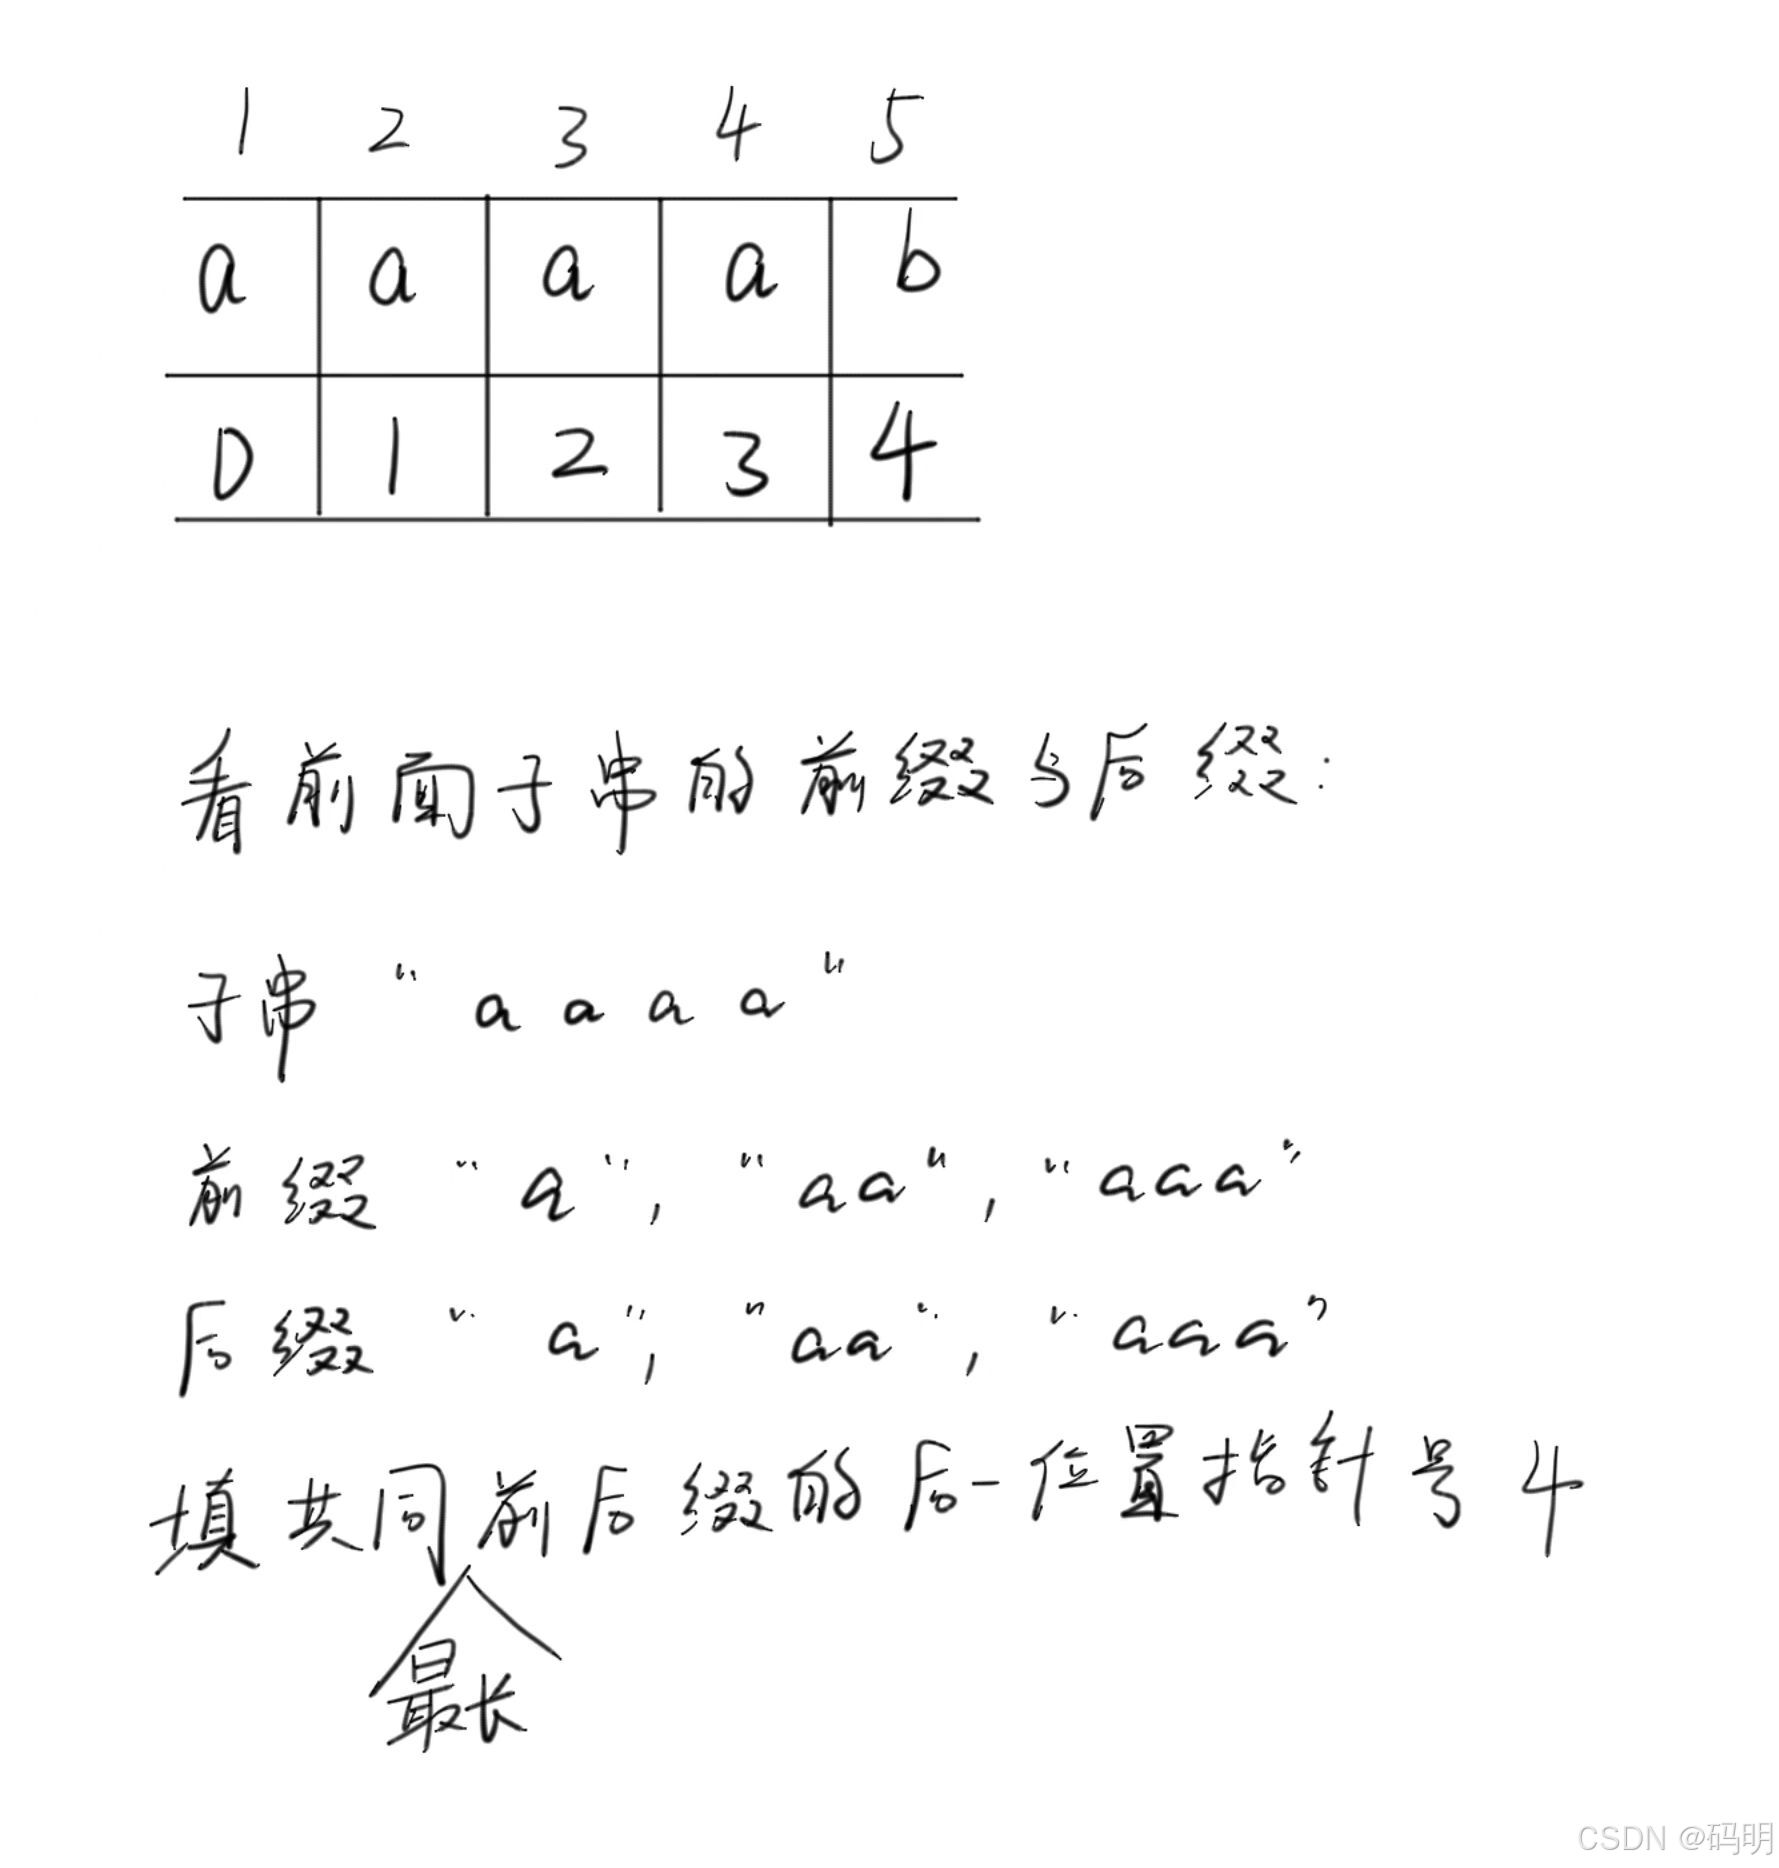 1 2 3 4 5
a a a a b
0 1 2 3 4
看前面子串的前缀与后缀:
子串 "a a a a"
前缀 "a", "aa", "aaa"
后缀 "a", "aa", "aaa"
填共同前后缀的后一位置指针号 4
最长
CSDN @码明